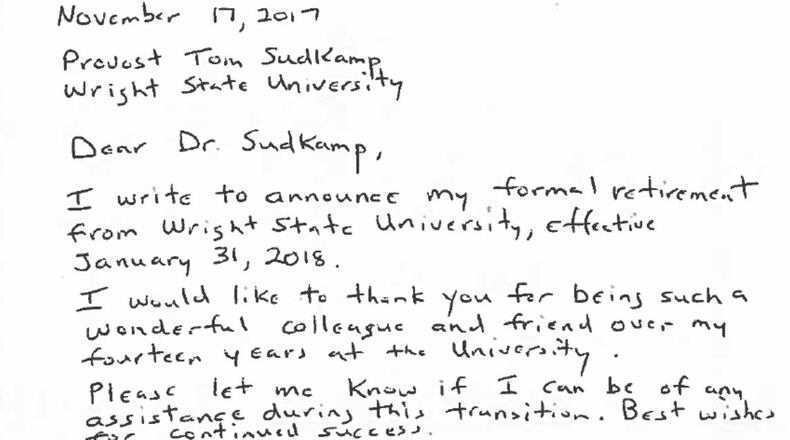 November 17, 2017
Provost Tom Sudkamp
Wright State University
Dear Dr. Sudkamp,
I write to announce my formal retirement
from Wright State University, effective
January 31, 2018.
I would like to thank you for being such a
wonderful colleague and friend over my
fourteen years at the University.
Please let me know if I can be of any
assistance during this transition. Best wishes
for continued success.